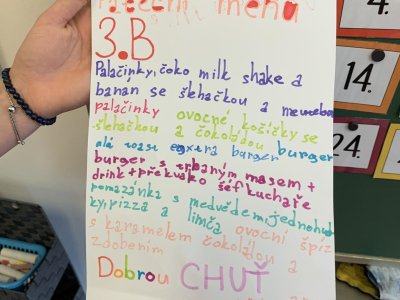 menu
3.B
Palačinky, čoko milk shake a
banán se šlehačkou a
palačinky ovocné košíčky se
šlehačkou a čokoládou burger
burger s trhaným masem +
drink + překvápko šéf kuchaře
pomazánka s medvědem, jednohub
ky, pizza a limča ovocní špíz
s karamelem čokoládou a
zdobením
Dobrou CHUŤ
4.
14.
24.